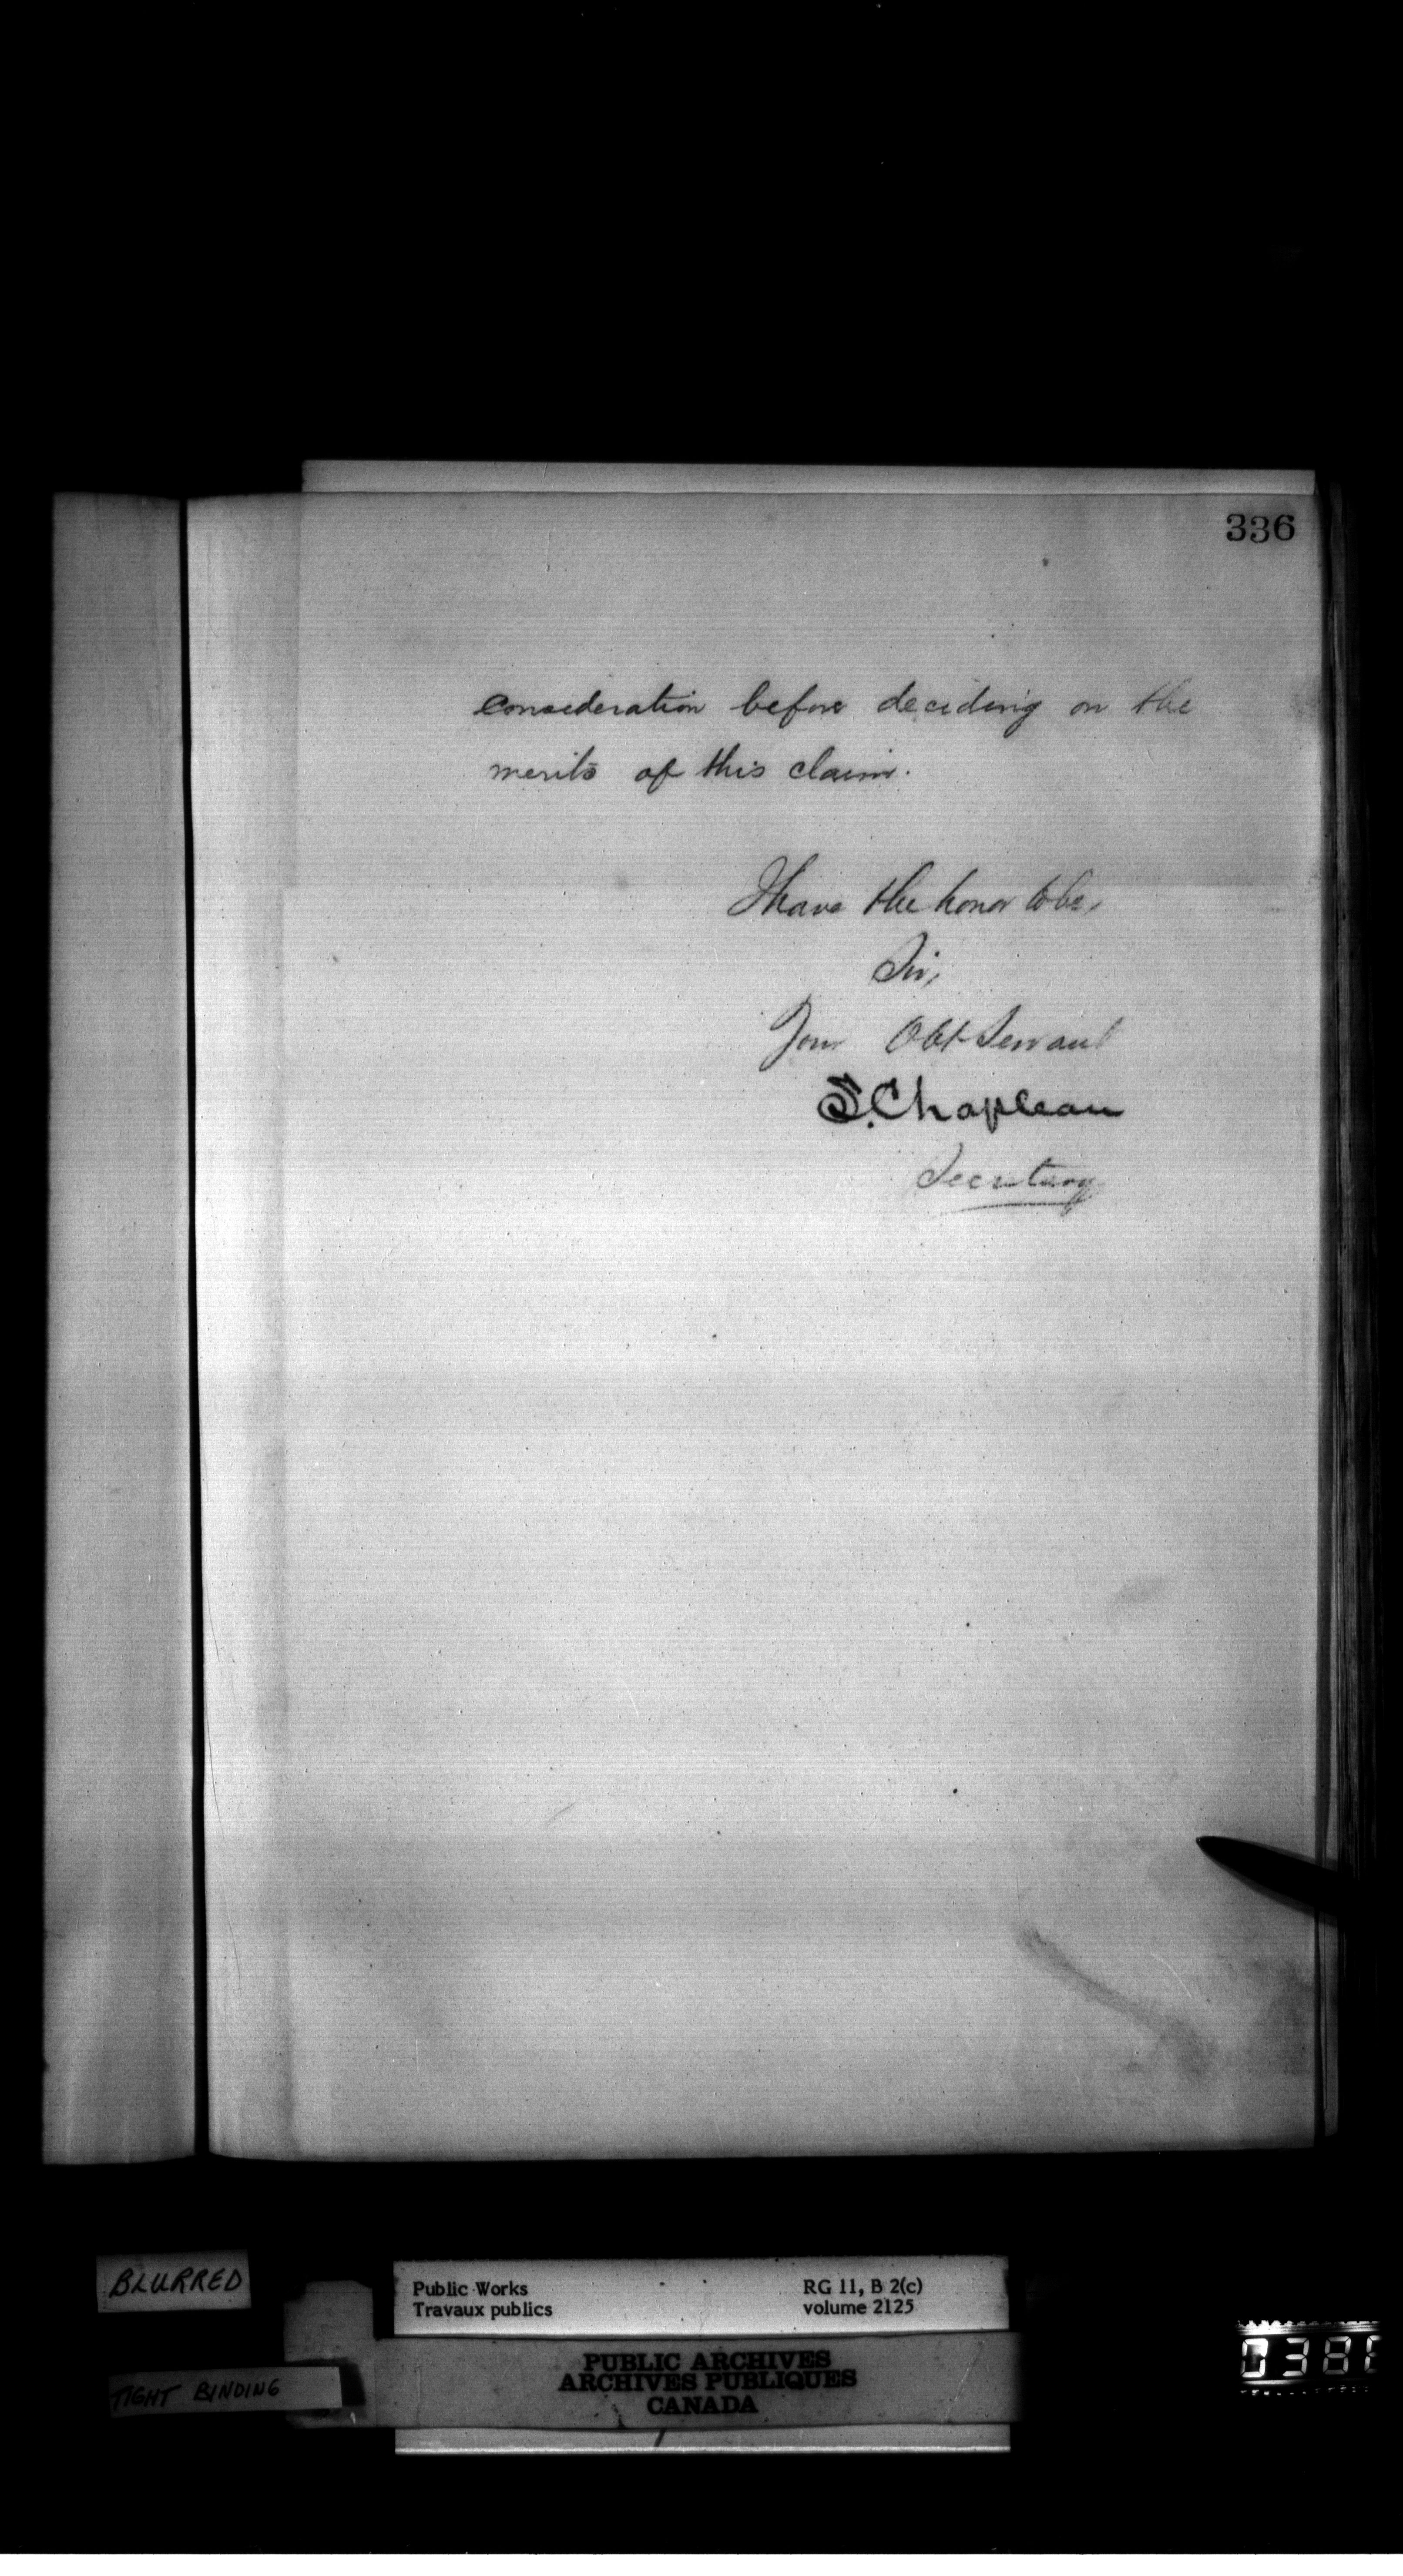 336
consideration before deciding on the
merits of this claim.
I have the honor to be,
Sir,
Your Obt Servant
S. Chapleau
Secretary
BLURRED
Public Works
Travaux publics
RG 11, B 2(c)
volume 2125
TIGHT BINDING
PUBLIC ARCHIVES
ARCHIVES PUBLIQUES
CANADA